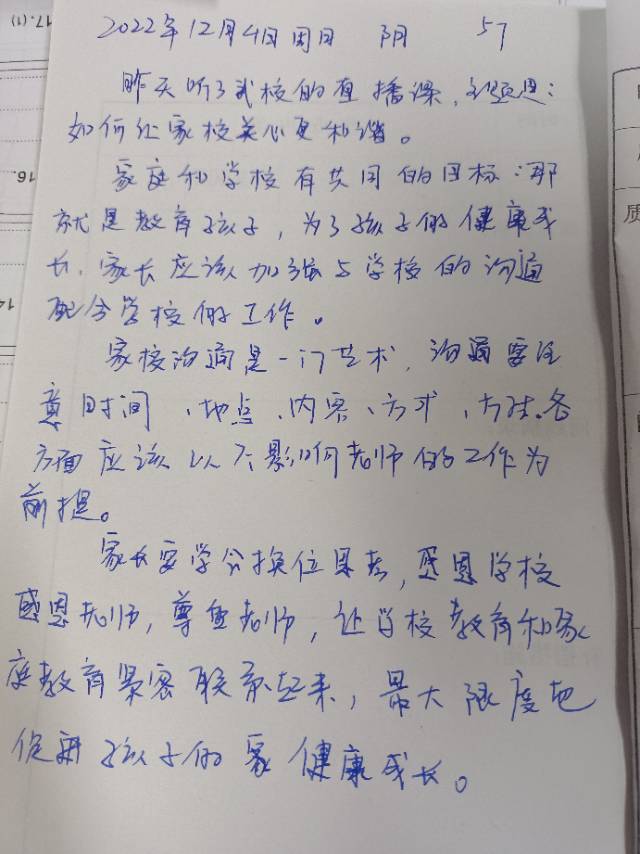 2022年12月4日周日 阴 57
昨天听了我校的直播课，主题是：
如何让家校关心更和谐。
家庭和学校有共同的目标：那
就是教育孩子，为了孩子的健康成
长，家长应该加强与学校的沟通
配合学校的工作。
家校沟通是一门艺术，沟通要注
意时间、地点、内容、方式、方法。各
方面应该以不影响老师的工作为
前提。
家长要学会换位思考，感恩学校
感恩老师，尊重老师，让学校教育和家
庭教育紧密联系起来，最大限度地
促进孩子的家健康成长。
17. (1)
16.
14
质